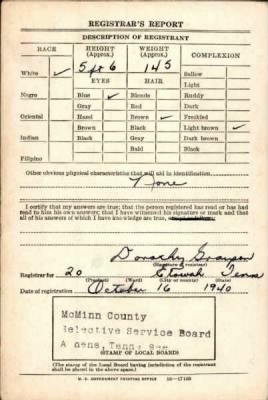 REGISTRAR'S REPORT
DESCRIPTION OF REGISTRANT
RACE HEIGHT (Approx.) WEIGHT (Approx.) COMPLEXION
White ✓ 5 ft 6 145 Sallow
EYES HAIR Light
Negro Blue ✓ Blonde Ruddy
Gray Red Dark
Oriental Hazel Brown ✓ Freckled
Brown Black Light brown ✓
Indian Black Gray Dark brown
Bald Black
Filipino
Other obvious physical characteristics that will aid in identification
None
I certify that my answers are true; that the person registered has read or has had
read to him his own answers; that I have witnessed his signature or mark and that
all of his answers of which I have knowledge are true,
Dorothy Grayson
(Signature of registrar)
Registrar for 20 Etowah Tenn
(Precinct) (Ward) (City or county) (State)
Date of registration October 16 1940
McMinn County
Selective Service Board
Athens, Tenn.
(STAMP OF LOCAL BOARD)
(The stamp of the Local Board having jurisdiction of the registrant
shall be placed in the above space.)
U. S. GOVERNMENT PRINTING OFFICE 16—17105